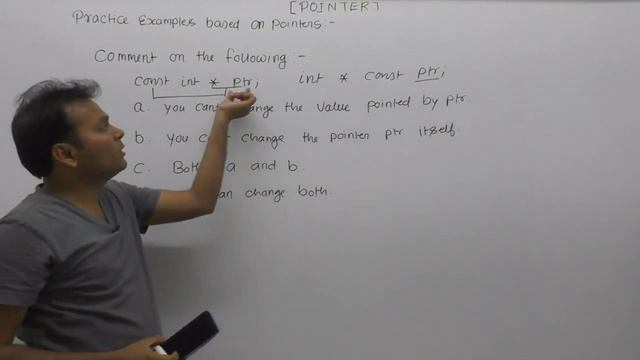 [POINTER]
Practice Examples based on pointers:-
Comment on the following:-
const int * ptr; int * const ptr;
a. you cant change the value pointed by ptr.
b. you change the pointer ptr itself.
c. Both a and b.
can change both.